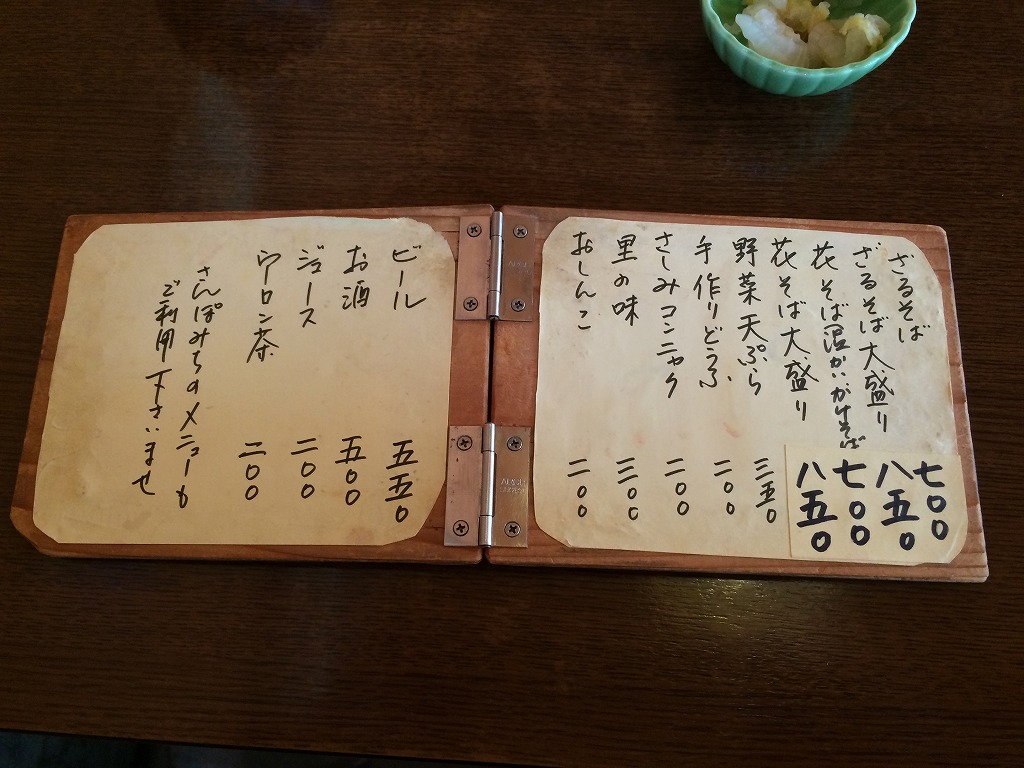 ざるそば 七〇〇
ざるそば大盛り 八五〇
花そば温かいが生そば 七〇〇
花そば大盛り 八五〇
野菜天ぷら 三五〇
手作りどうふ 二〇〇
さしみコンニャク 二〇〇
里の味 三〇〇
おしんこ 二〇〇
ビール 五五〇
お酒 五〇〇
ジュース 二〇〇
ウーロン茶 二〇〇
さんぽみちのメニューも
ご利用下さいませ